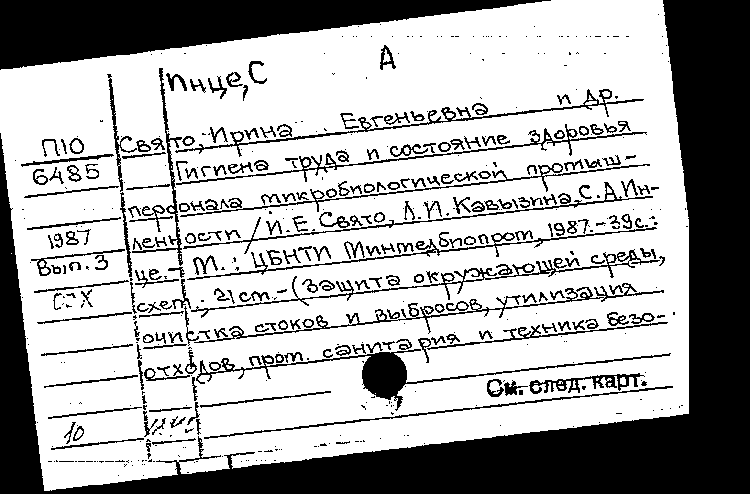 Инце, С А
Свято, Ирина Евгеньевна и др.
П10
6485
Гигиена труда и состояние здоровья
персонала микробиологической промыш-
1987
Вып. 3
ленности / И.Е. Свято, Л.И. Кавызина, С.А. Ин-
це. - М.: ЦБНТИ Минмедбиопром, 1987. - 39с.:
схем.; 21см. - (Защита окружающей среды,
очистка стоков и выбросов, утилизация
отходов, пром. санитария и техника безо-
См. след. карт.
10